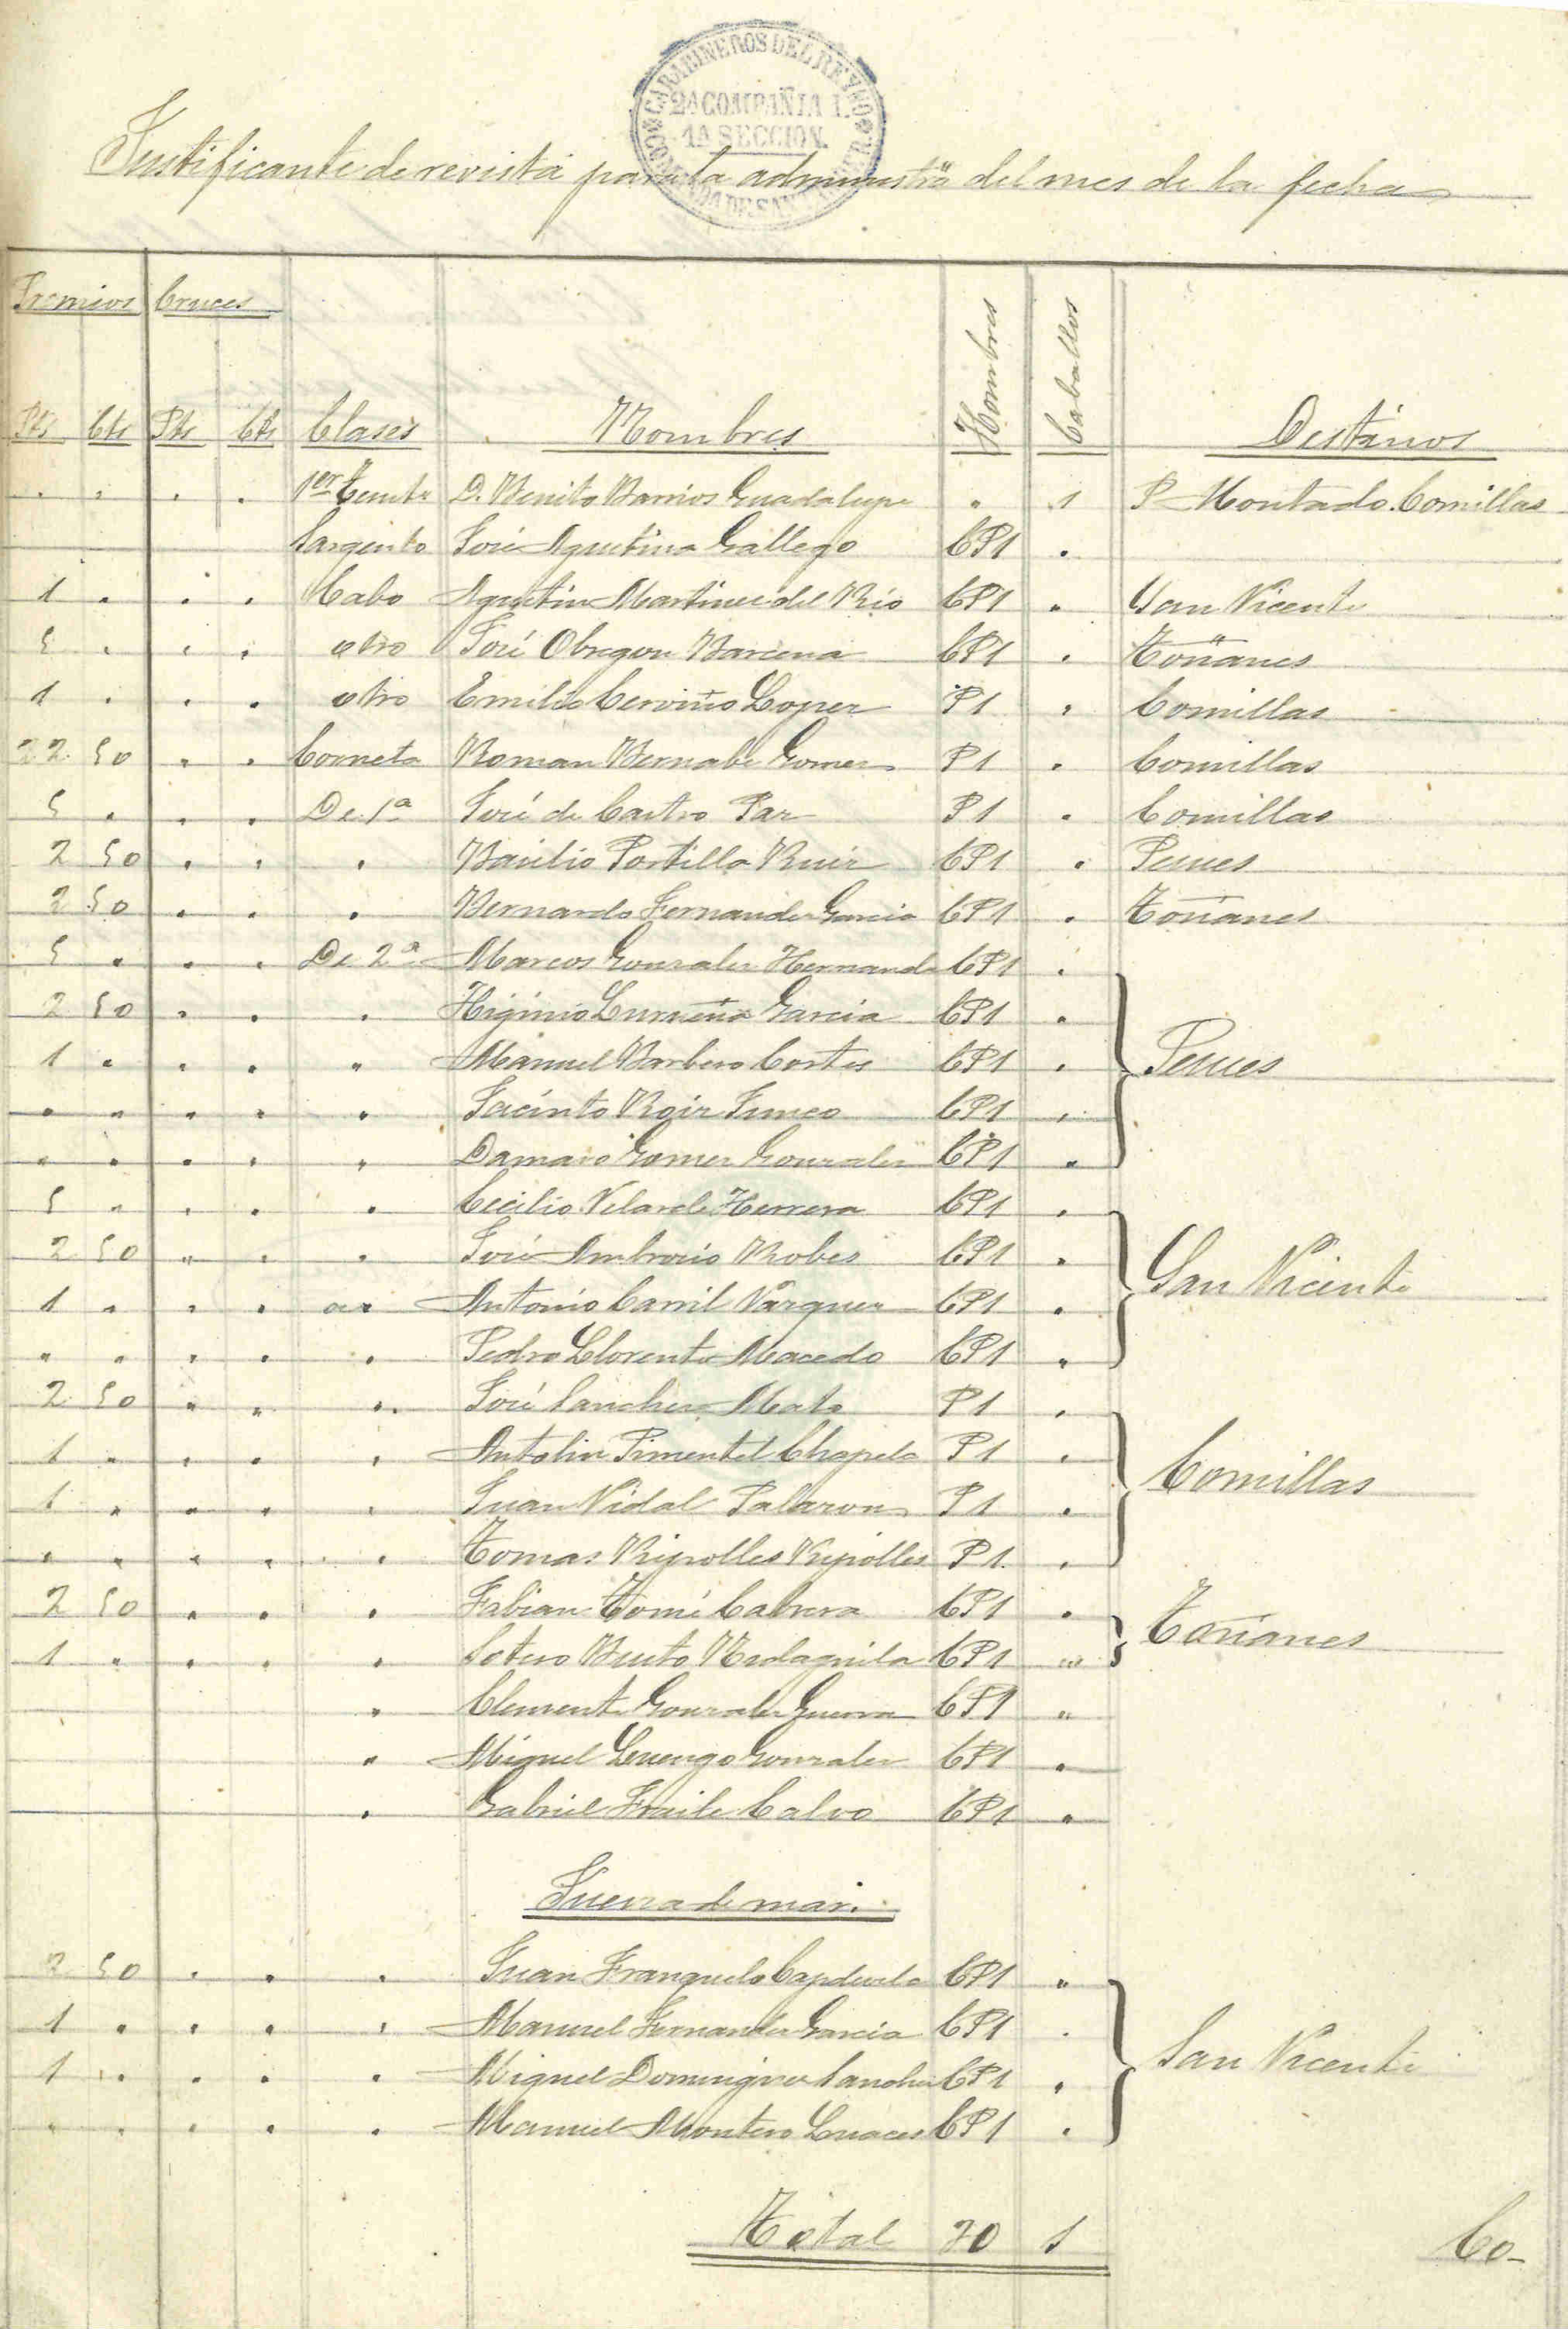 CARABINEROS DEL REYNO
2ª COMPAÑIA 1.
1ª SECCION.
Justificante de revista para la administrón del mes de la fecha
Premios Cruces
Pts Cts Pts Cts Clases Nombres Hombres Caballos Destinos
" " " " 1er Tente D. Benito Barrios Guadalupe " 1 P. Montado. Comillas
Sargento José Agustina Gallego CP1 "
1 " " " Cabo Agustin Martinez del Rio CP1 " San Vicente
5 " " " otro José Obregon Barcena CP1 " Toñanes
1 " " " otro Emilio Cerviño Lopez P1 " Comillas
22 50 " " Corneta Roman Bernabe Gomez P1 " Comillas
5 " " " De 1ª José de Castro Paz P1 " Comillas
2 50 " " " Basilio Portilla Ruiz CP1 " Pesues
2 50 " " " Bernardo Fernandez Garcia CP1 " Toñanes
5 " " " De 2ª Marcos Gonzalez Hernando CP1 "
2 50 " " " Higinio Garcia CP1 "
1 " " " " Manuel Barbero Cortes CP1 " Pesues
" " " " " Jacinto Roiz Junco CP1 "
" " " " " Damaso Gomez Gonzalez CP1 "
5 " " " " Cecilio Velarde Herrera CP1 "
2 50 " " " José Ambrosio Robes CP1 " San Vicente
1 " " " " Antonio Carril Vazquez CP1 "
" " " " " Pedro Llorente Macedo CP1 "
2 50 " " " José Sanchez Mata P1 "
1 " " " " Antolin Pimentel Chapela P1 " Comillas
1 " " " " Juan Vidal Palazon P1 "
" " " " " Tomas Ripolles Ripolles P1 "
2 50 " " " Fabian Tomé Cabrera CP1 " Toñanes
1 " " " " Sotero Busto CP1 "
" Clemente Gonzalez Guerra CP1 "
" Miguel Luengo Gonzalez CP1 "
" Gabriel Fraile Calvo CP1 "
Fuerza de mar.
2 50 " " " Juan Franquelo Capdevila CP1 "
1 " " " " Manuel Fernandez Garcia CP1 "
1 " " " " Miguel Dominguez Sanchez CP1 " San Vicente
" " " " " Manuel Montero Luaces CP1 "
Total 30 1
Co-